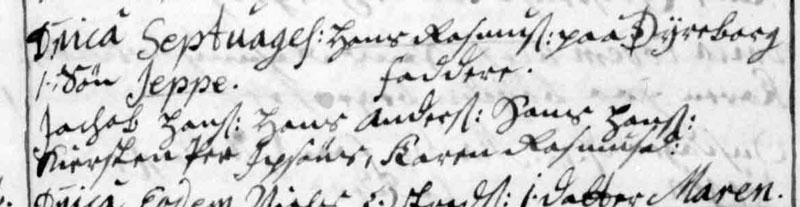 Dnicâ Septuages: Hans Rasmus: paa Dyreborg
1. Sön Jeppe. Faddere.
Jachob Hans: Hans Anders: Hans Hans:
Kiersten Per Ipsöns, Karen Rasmusd:
Dnicâ Eodem Niels 1. datter Maren.